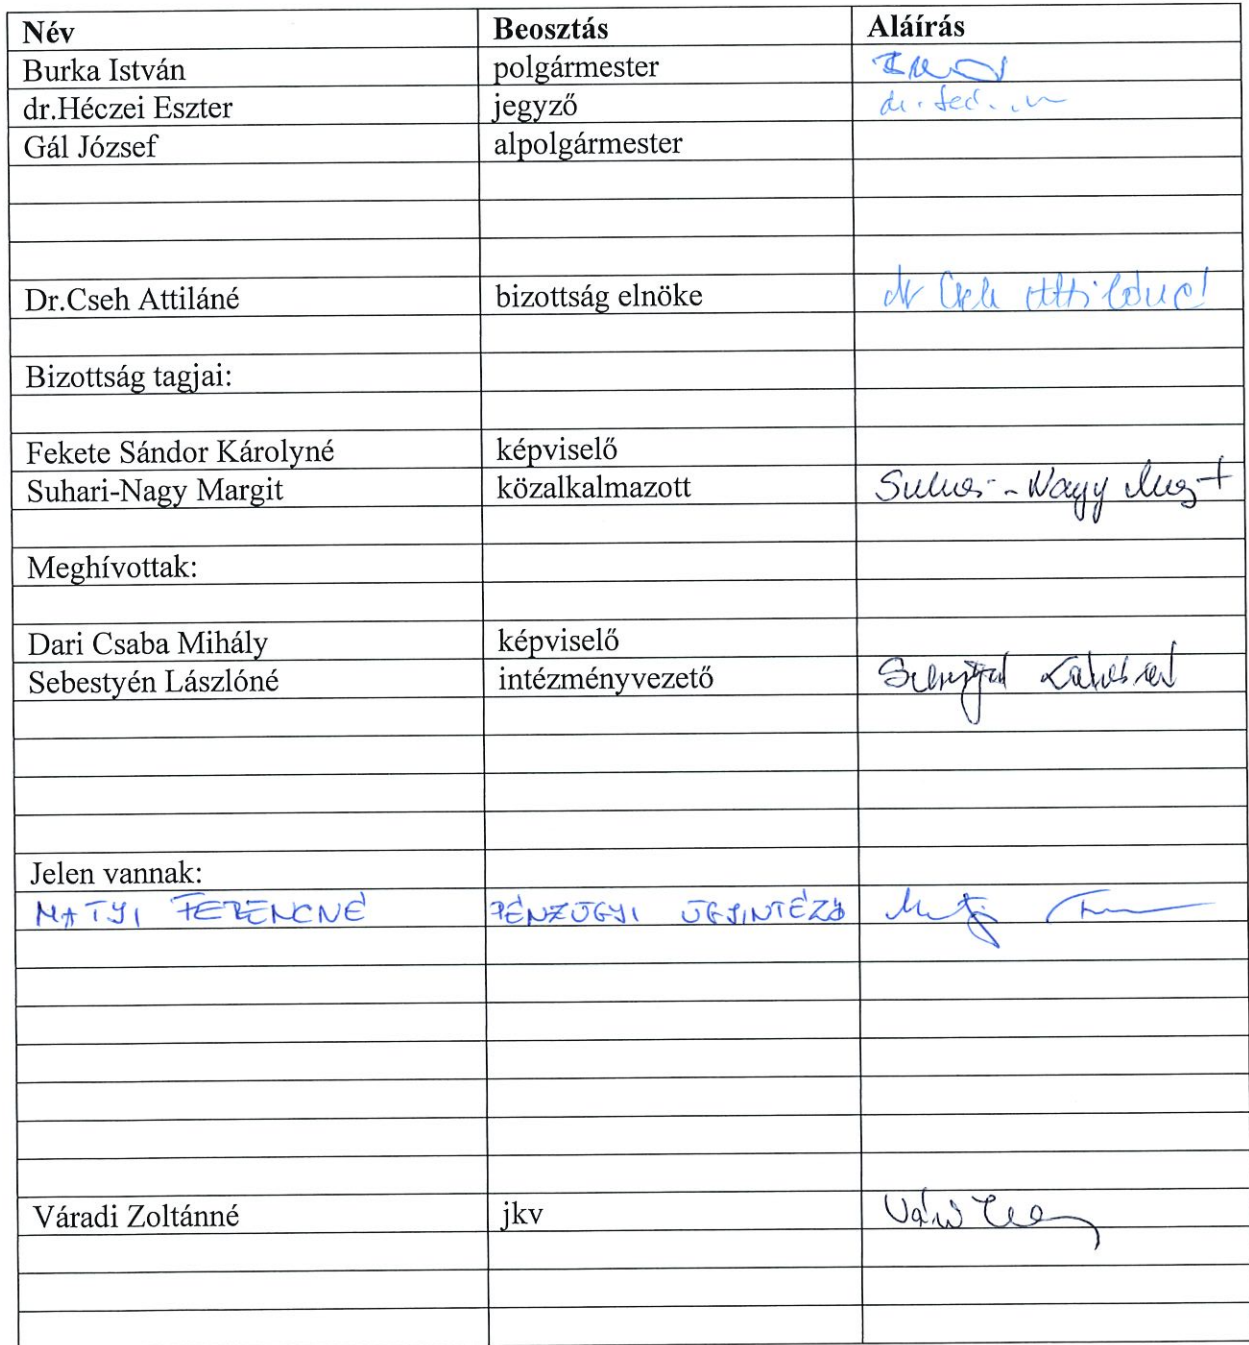 Név Beosztás Aláírás
Burka István polgármester
dr.Héczei Eszter jegyző
Gál József alpolgármester
Dr.Cseh Attiláné bizottság elnöke dr Cseh Attiláné
Bizottság tagjai:
Fekete Sándor Károlyné képviselő
Suhari-Nagy Margit közalkalmazott Suhari-Nagy Margit
Meghívottak:
Dari Csaba Mihály képviselő
Sebestyén Lászlóné intézményvezető Sebestyén Lászlóné
Jelen vannak:
MATYI FERENCNÉ PÉNZÜGYI ÜGYINTÉZŐ
Váradi Zoltánné jkv